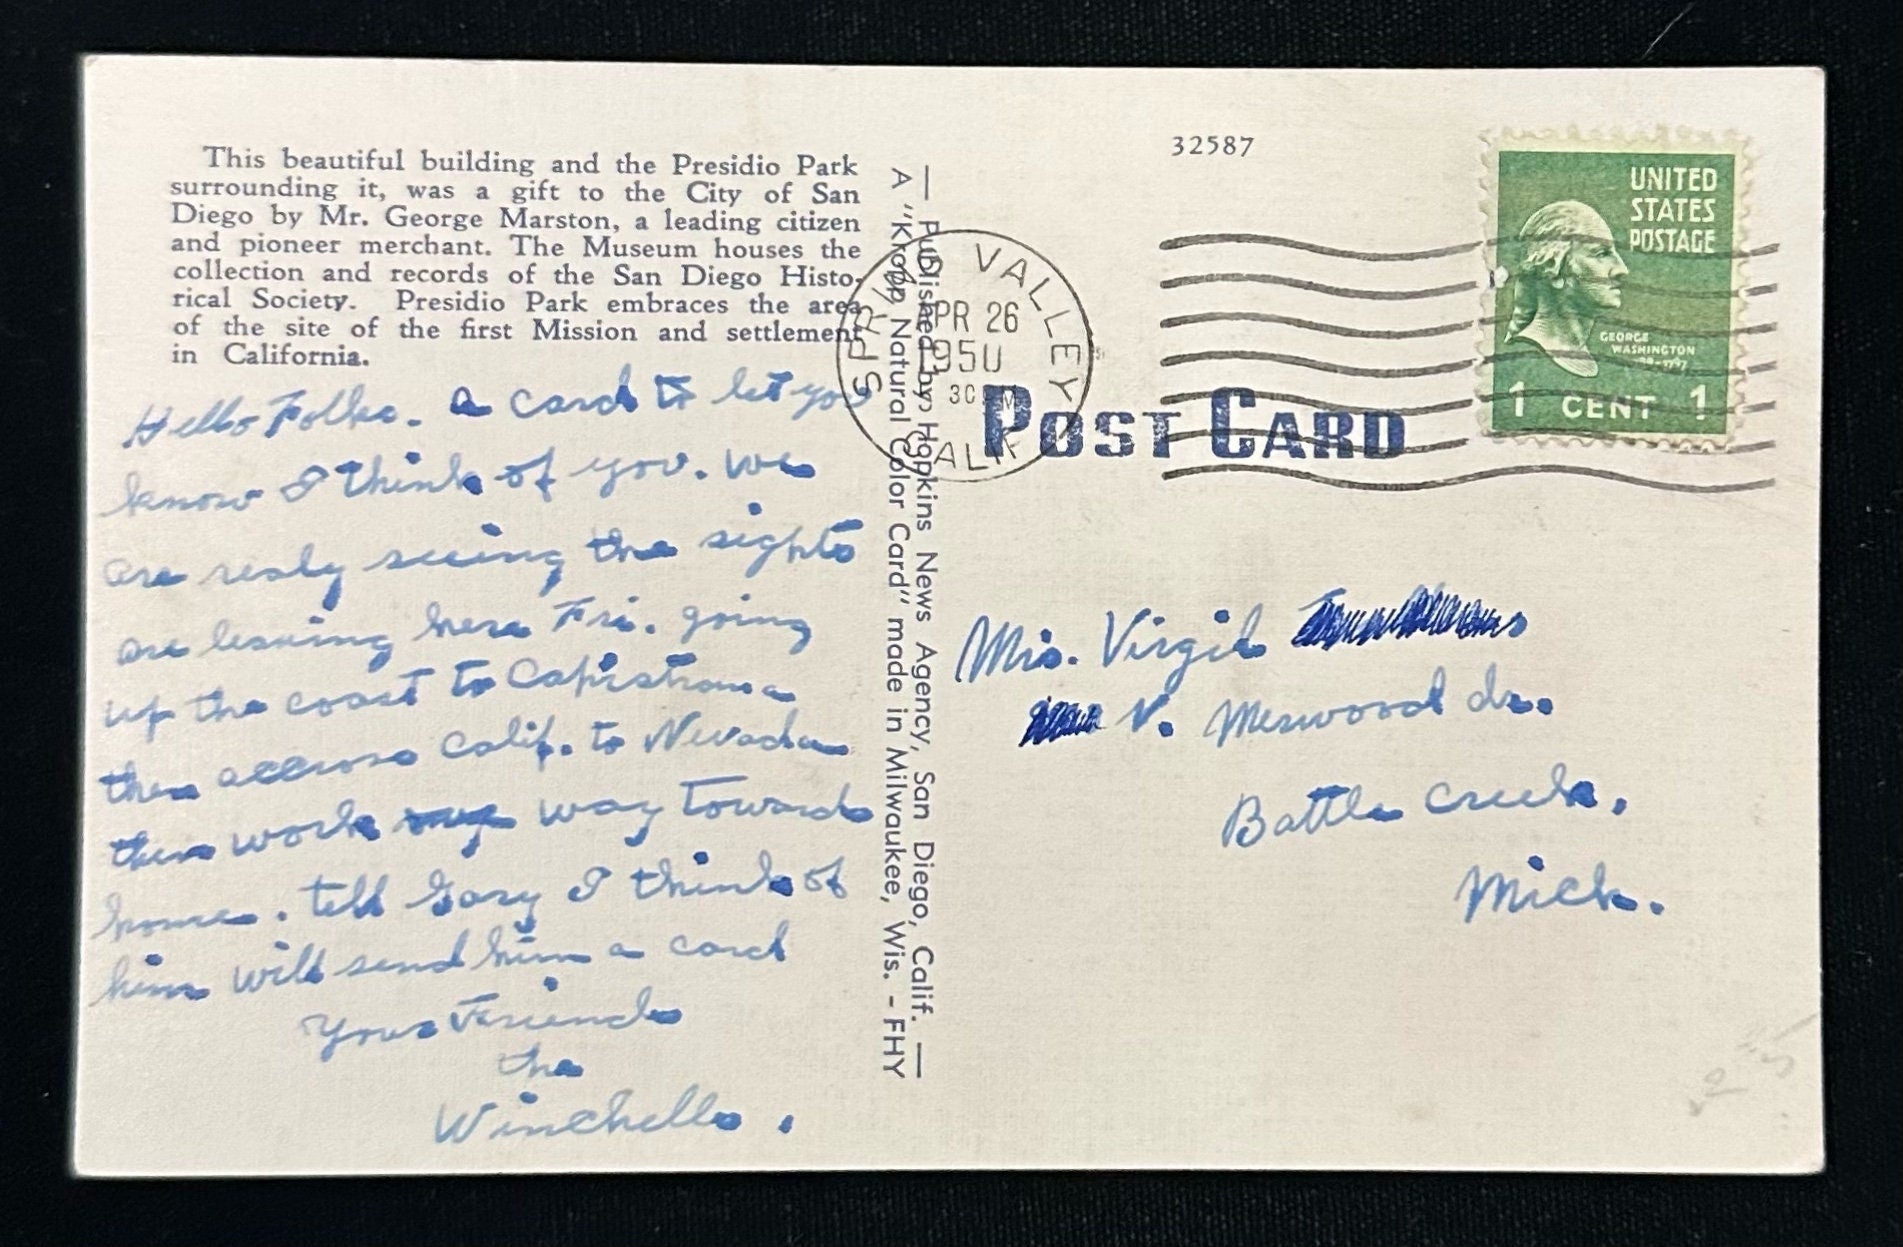 This beautiful building and the Presidio Park
surrounding it, was a gift to the City of San
Diego by Mr. George Marston, a leading citizen
and pioneer merchant. The Museum houses the
collection and records of the San Diego Histo-
rical Society. Presidio Park embraces the area
of the site of the first Mission and settlement
in California.
Hello Folks. a card to let you
know I think of you. We
are realy seeing the sights
are leaving here Fri. going
up the coast to Capistrana
then accross Calif. to Nevada
then work way towards
home. tell Gary I think of
him will send him a card
Your Friends
the
Winchells.
— Published by: Hopkins News Agency, San Diego, Calif. —
A "Kropp Natural Color Card" made in Milwaukee, Wis. - FHY
32587
SPRING VALLEY
APR 26
1950
CALIF
POST CARD
UNITED
STATES
POSTAGE
GEORGE
WASHINGTON
1 CENT 1
Mrs. Virgil
N. Merwood dr.
Battle Creek.
Mich.